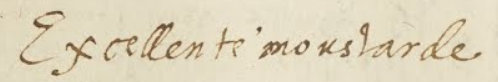 Excellente moustarde